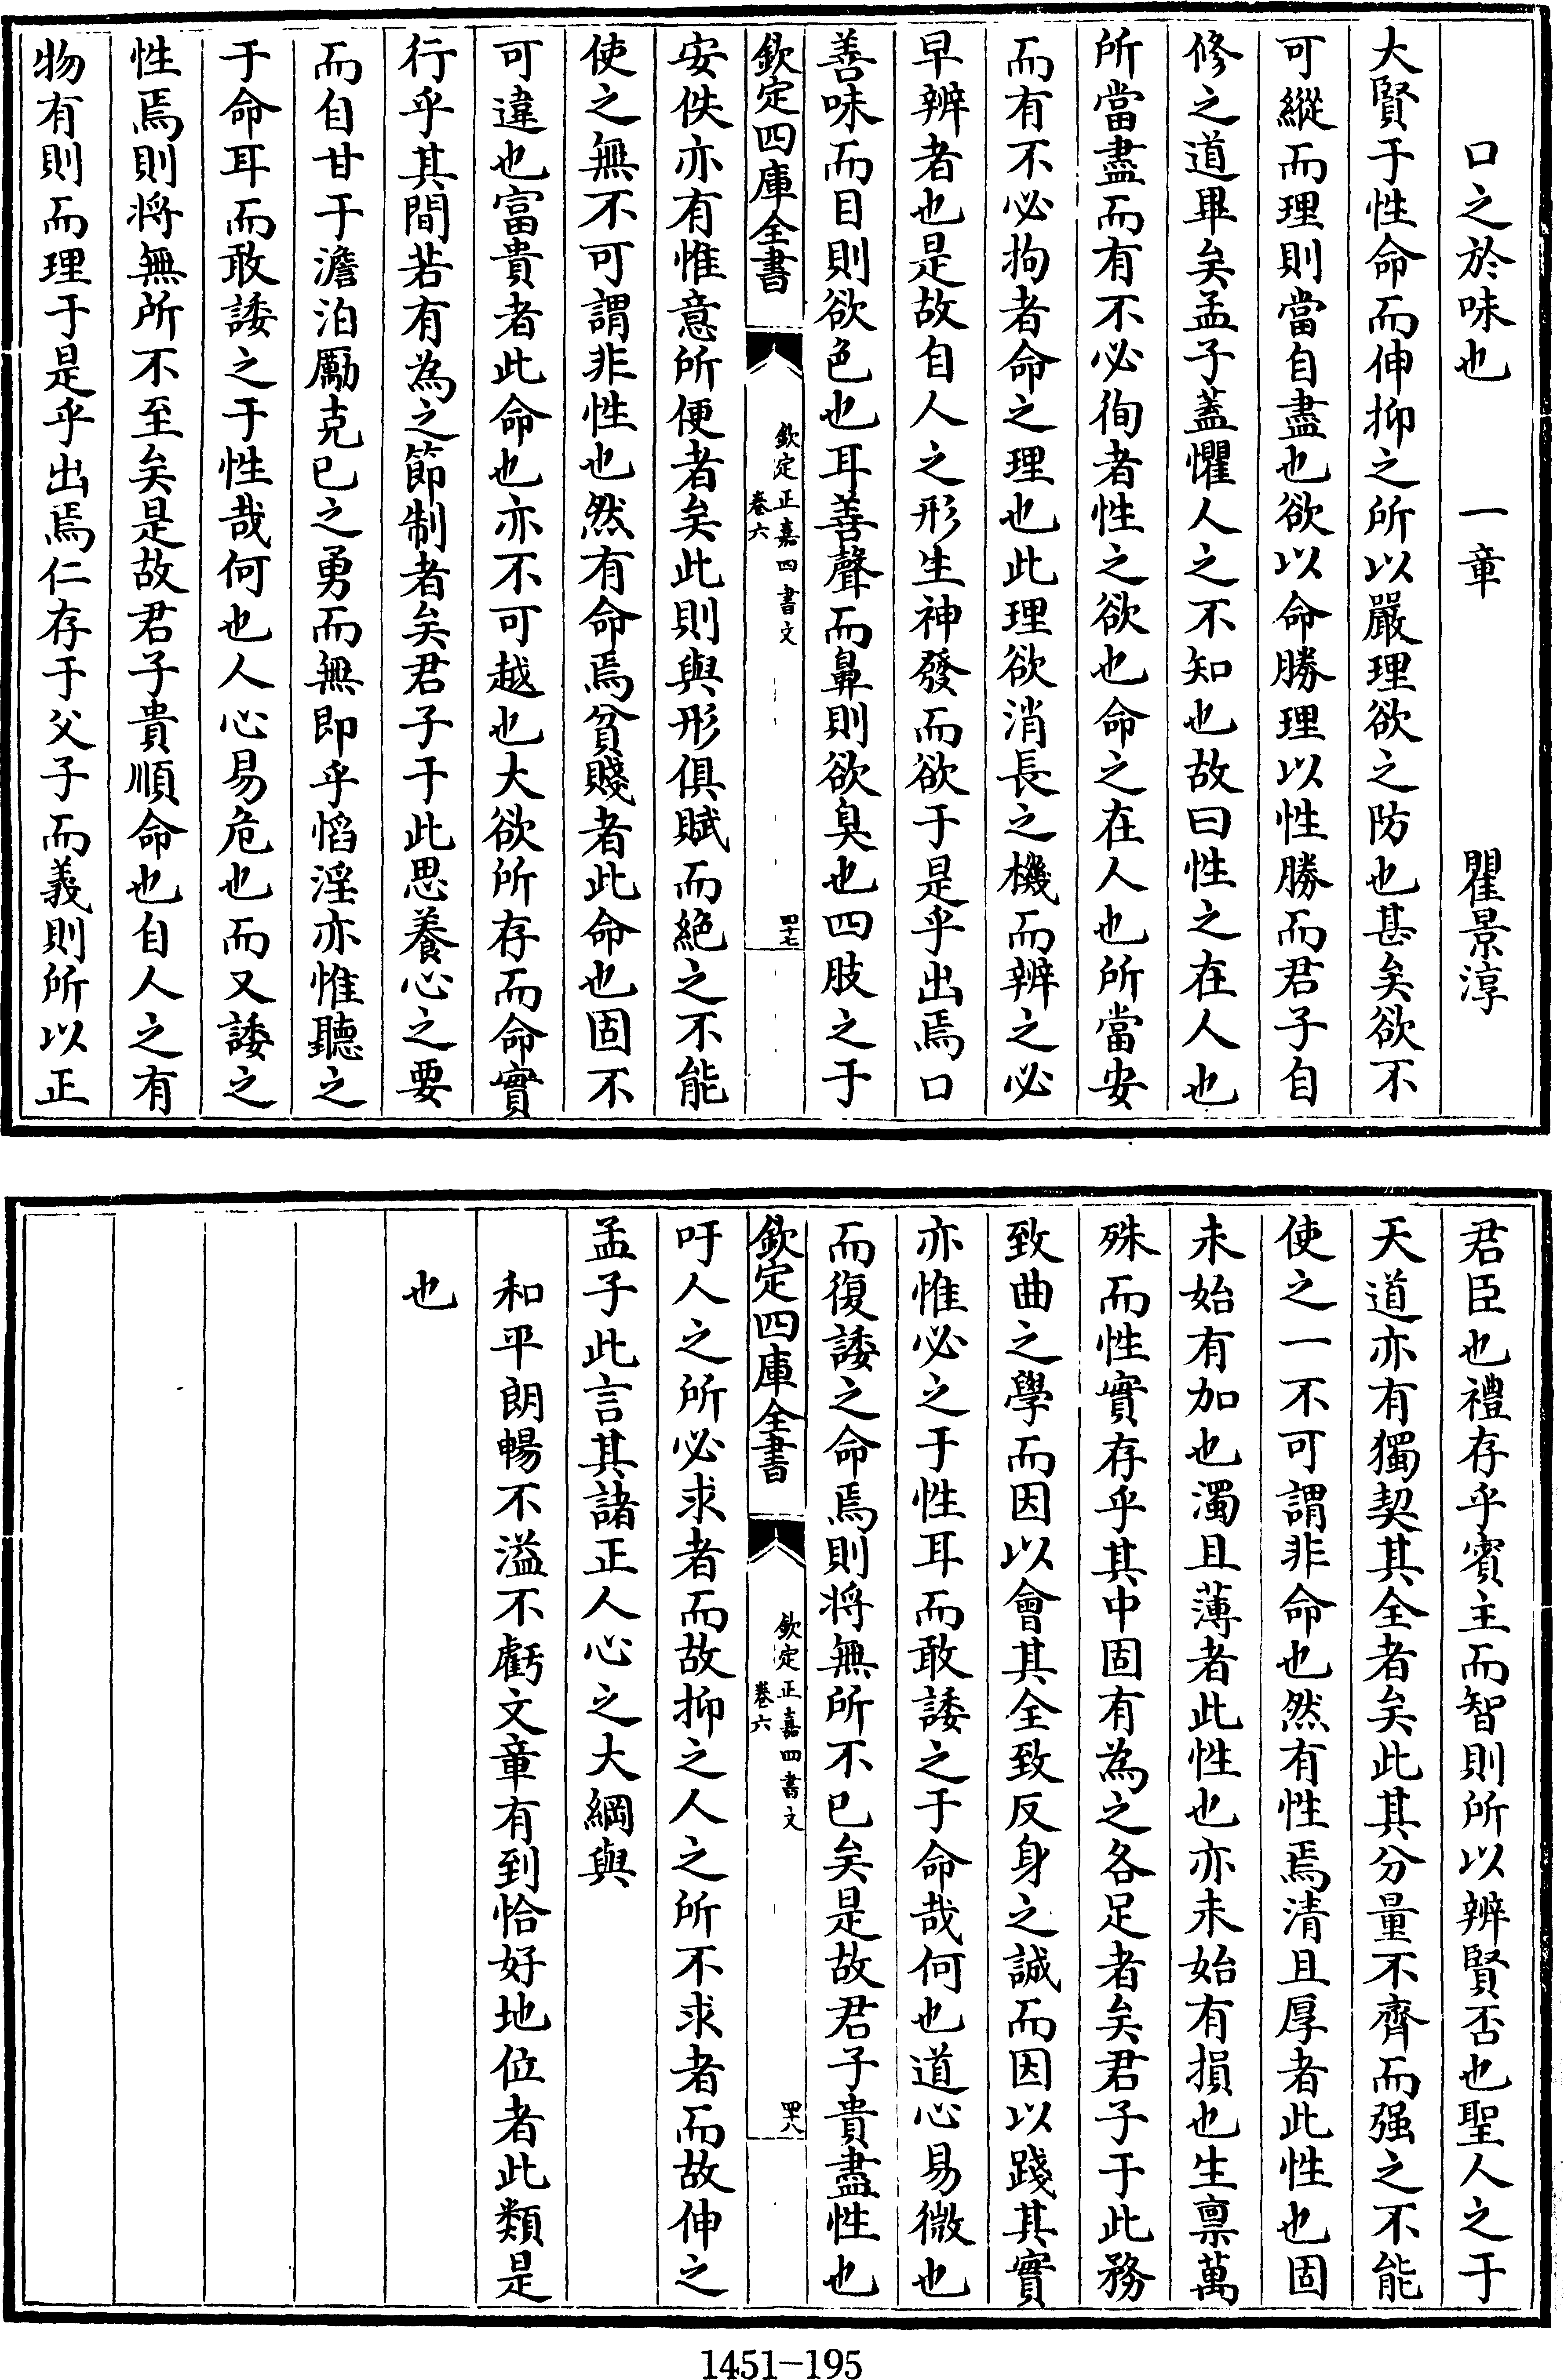 口之於味也　一章　瞿景淳
大賢于性命而伸抑之所以嚴理欲之防也甚矣欲不
可縱而理則當自盡也欲以命勝理以性勝而君子自
修之道畢矣孟子蓋懼人之不知也故曰性之在人也
所當盡而有不必徇者性之欲也命之在人也所當安
而有不必拘者命之理也此理欲消長之機而辨之必
早辨者也是故自人之形生神發而欲于是乎出焉口
善味而目則欲色也耳善聲而鼻則欲臭也四肢之于
欽定四庫全書
欽定正嘉四書文
卷六
四十七
安佚亦有惟意所便者矣此則與形俱賦而絕之不能
使之無不可謂非性也然有命焉貧賤者此命也固不
可違也富貴者此命也亦不可越也大欲所存而命實
行乎其間若有為之節制者矣君子于此思養心之要
而自甘于澹泊勵克已之勇而無即乎慆淫亦惟聽之
于命耳而敢諉之于性哉何也人心易危也而又諉之
性焉則將無所不至矣是故君子貴順命也自人之有
物有則而理于是乎出焉仁存于父子而義則所以正
君臣也禮存乎賓主而智則所以辨賢否也聖人之于
天道亦有獨契其全者矣此其分量不齊而强之不能
使之一不可謂非命也然有性焉清且厚者此性也固
未始有加也濁且薄者此性也亦未始有損也生禀萬
殊而性實存乎其中固有為之各足者矣君子于此務
致曲之學而因以會其全致反身之誠而因以踐其實
亦惟必之于性耳而敢諉之于命哉何也道心易微也
而復諉之命焉則將無所不已矣是故君子貴盡性也
欽定四庫全書
欽定正嘉四書文
卷六
四十八
吁人之所必求者而故抑之人之所不求者而故伸之
孟子此言其諸正人心之大綱與
和平朗暢不溢不虧文章有到恰好地位者此類是
也
1451-195